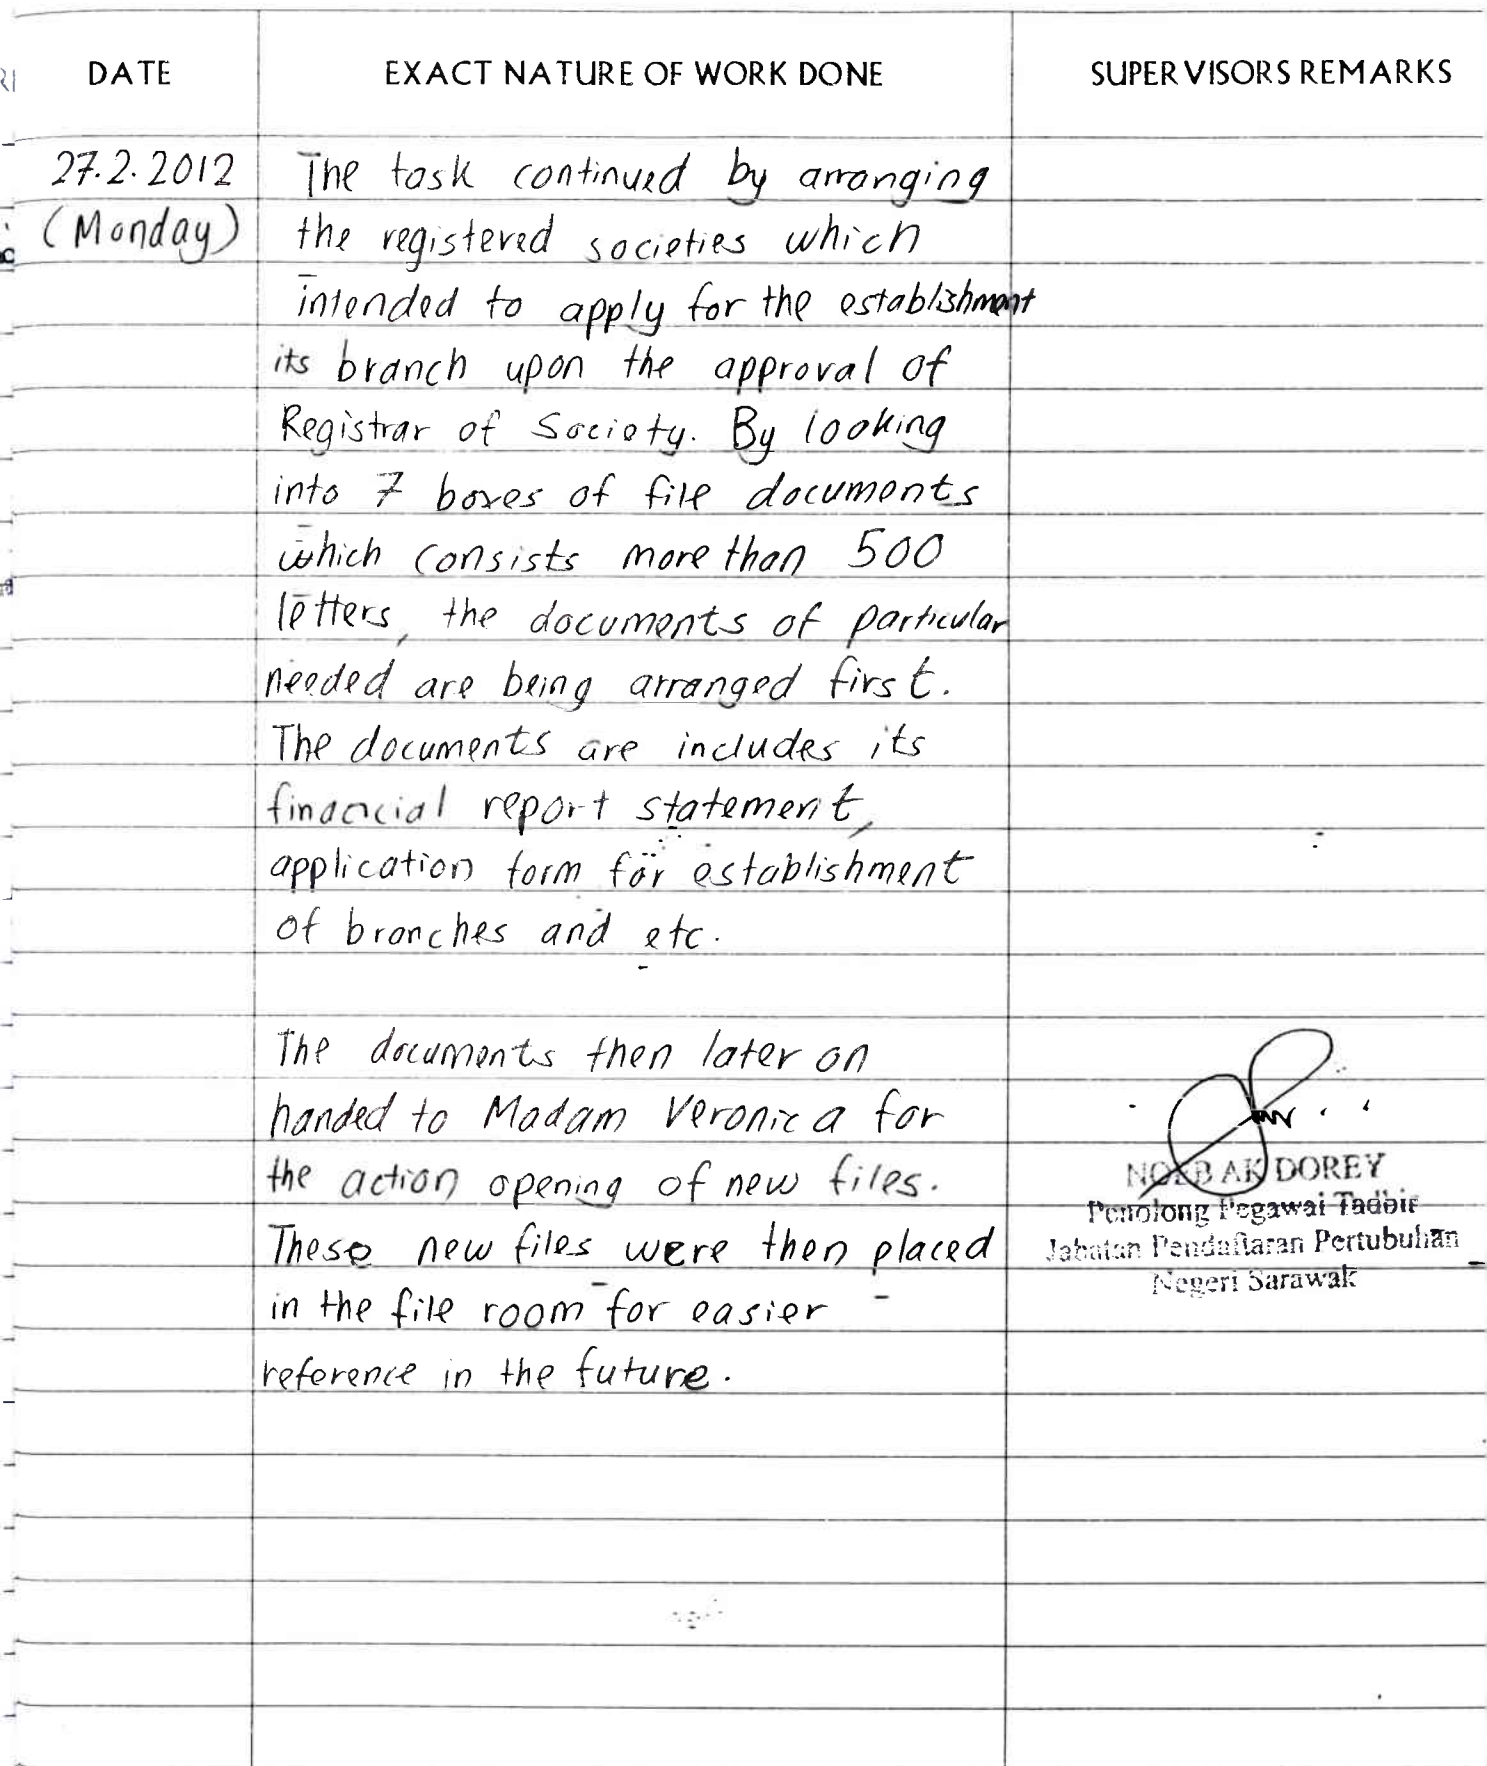 DATE EXACT NATURE OF WORK DONE SUPERVISORS REMARKS
27.2.2012 The task continued by arranging
(Monday) the registered societies which
intended to apply for the establishment
its branch upon the approval of
Registrar of Society. By looking
into 7 boxes of file documents
which consists more than 500
letters, the documents of particular
needed are being arranged first.
The documents are includes its
financial report statement,
application form for establishment
of branches and etc.
The documents then later on
handed to Madam Veronica for
the action opening of new files.
These new files were then placed
in the file room for easier
reference in the future.
AK DOREY
Penolong Pegawai Tadbir
Jabatan Pendaftaran Pertubuhan
Negeri Sarawak